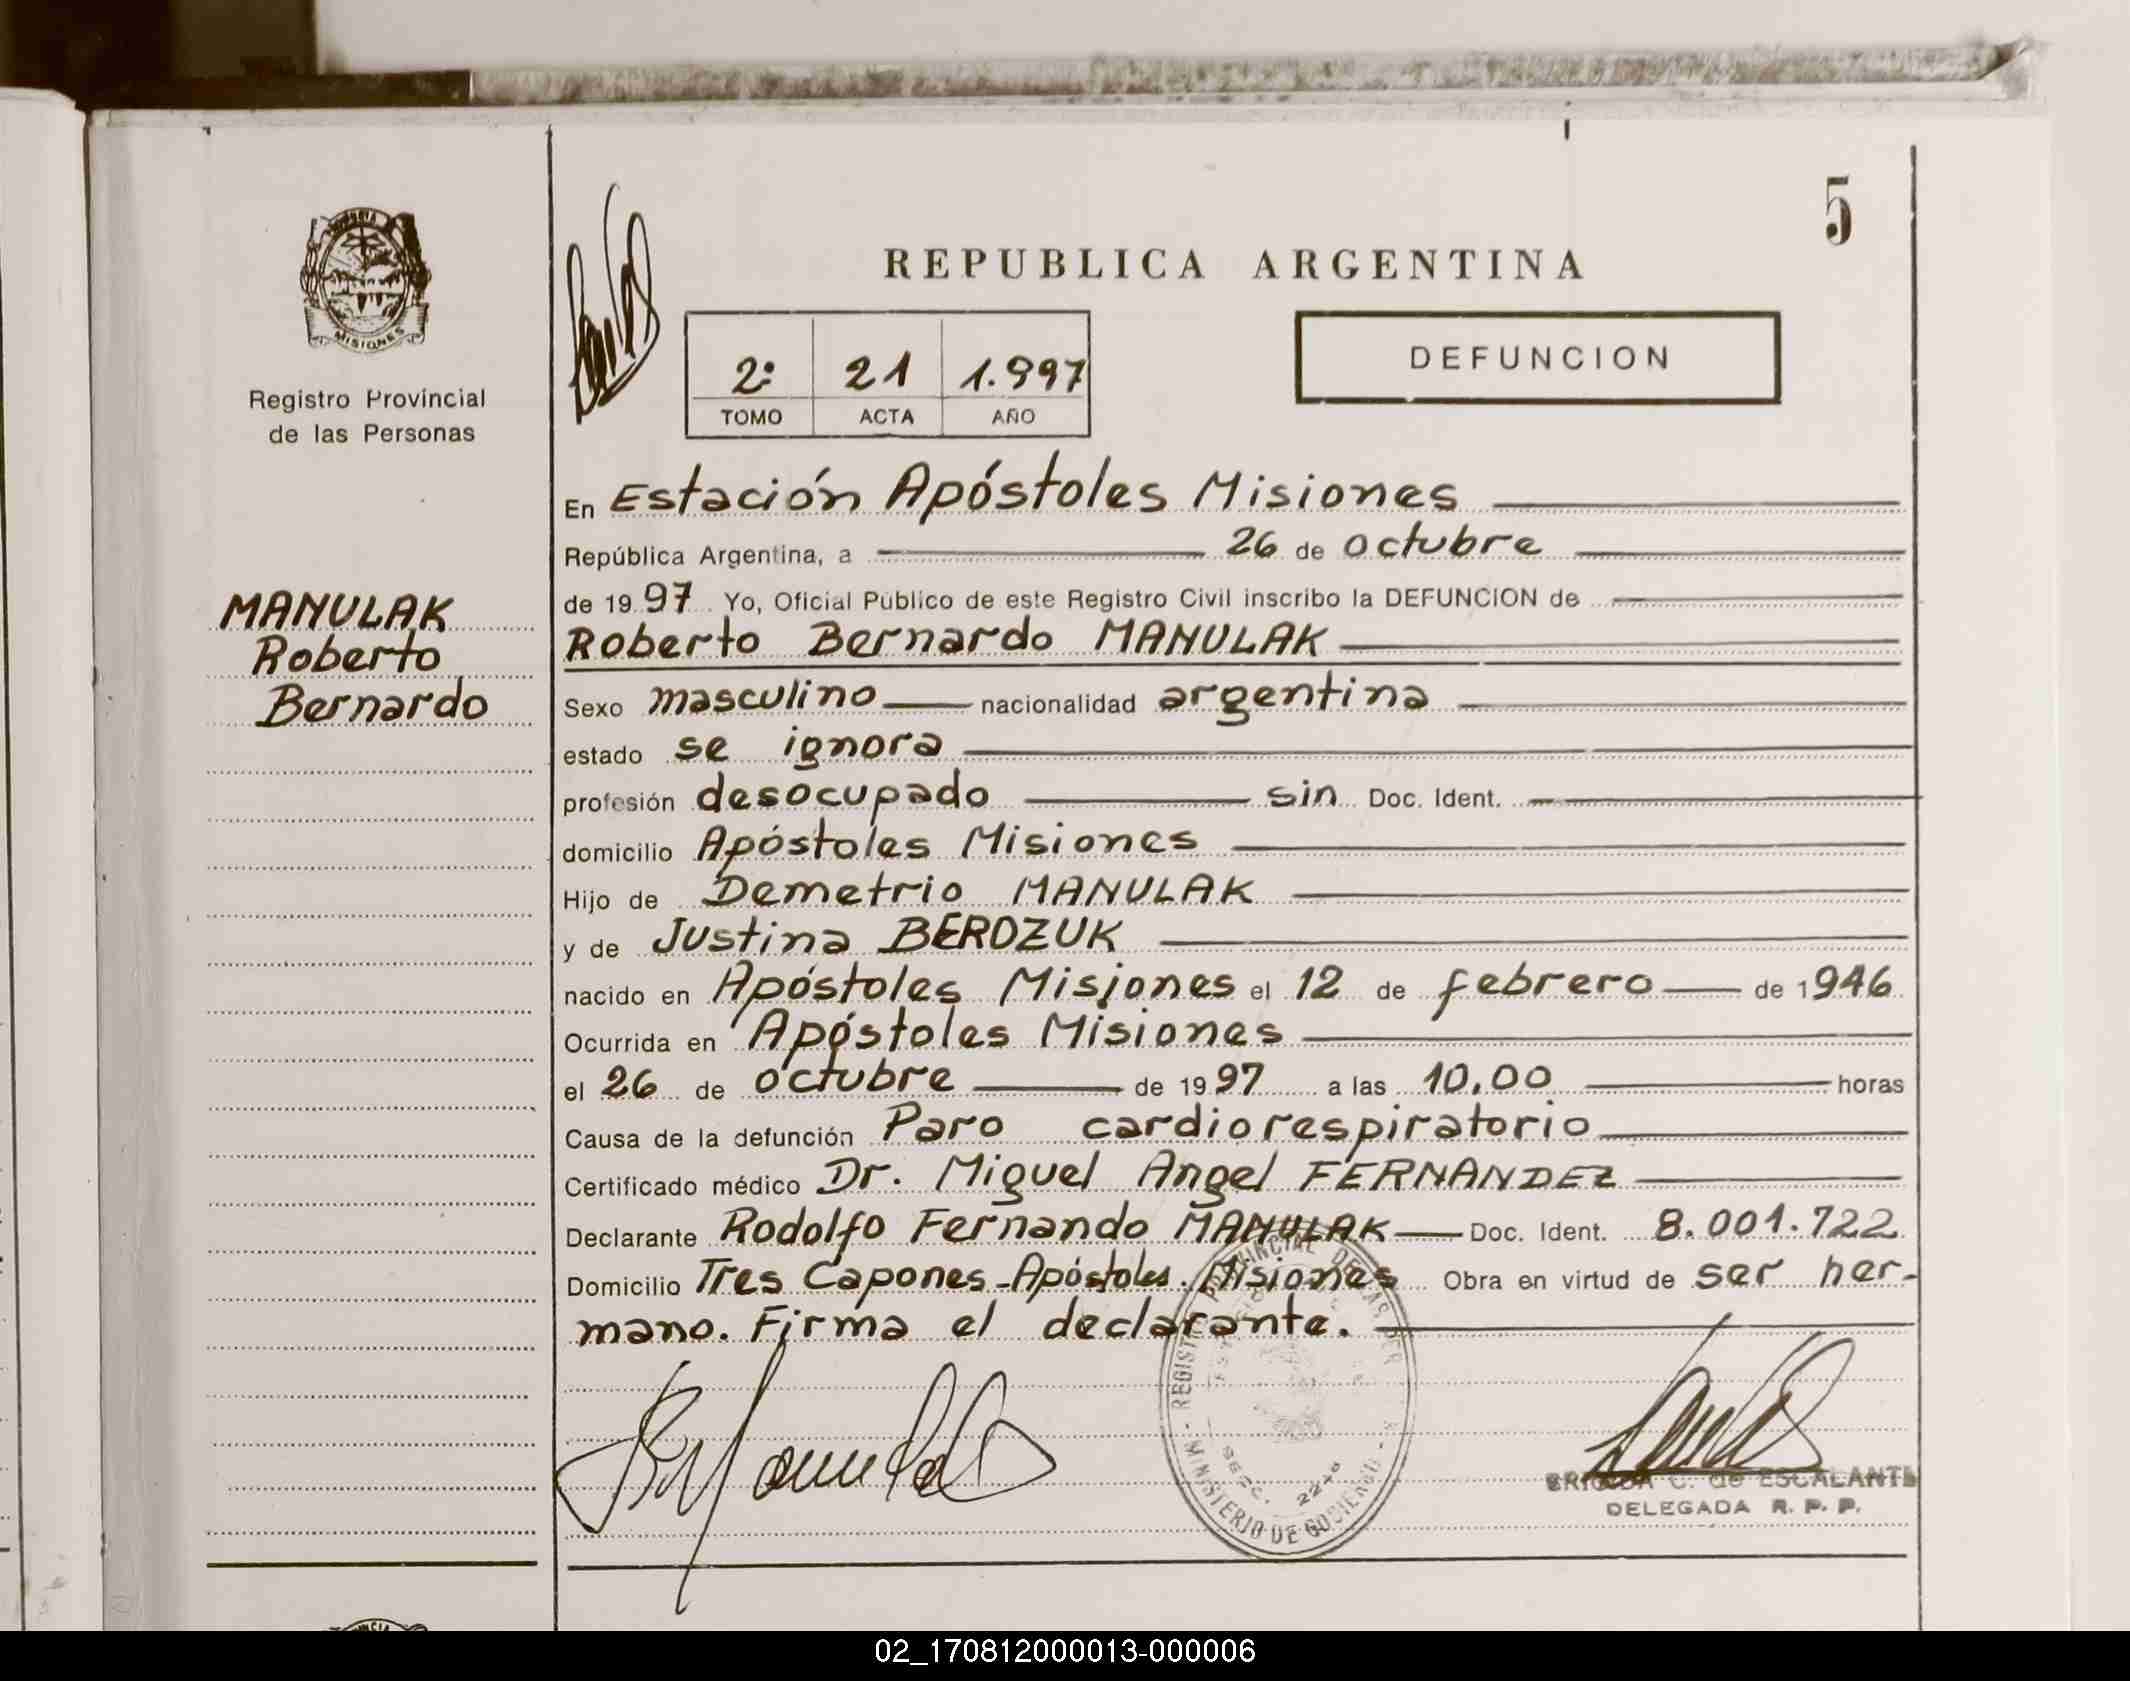 5
REPUBLICA ARGENTINA
2º 21 1.997
TOMO ACTA AÑO
DEFUNCION
MISIONES
Registro Provincial
de las Personas
MANULAK
Roberto
Bernardo
En Estación Apóstoles Misiones
República Argentina, a 26 de octubre
de 1997 Yo, Oficial Público de este Registro Civil inscribo la DEFUNCION de
Roberto Bernardo MANULAK
Sexo masculino nacionalidad argentina
estado se ignora
profesión desocupado sin Doc. Ident.
domicilio Apóstoles Misiones
Hijo de Demetrio MANULAK
y de Justina BEROZUK
nacido en Apóstoles Misiones el 12 de febrero de 1946
Ocurrida en Apóstoles Misiones
el 26 de octubre de 1997 a las 10,00 horas
Causa de la defunción Paro cardiorespiratorio
Certificado médico Dr. Miguel Angel FERNANDEZ
Declarante Rodolfo Fernando MANULAK Doc. Ident. 8.001.722
Domicilio Tres Capones-Apóstoles. Misiones Obra en virtud de ser her-
mano. Firma el declarante.
MINISTERIO DE GOBIERNO
BRIGIDA C. de ESCALANTE
DELEGADA R. P. P.
02_170812000013-000006